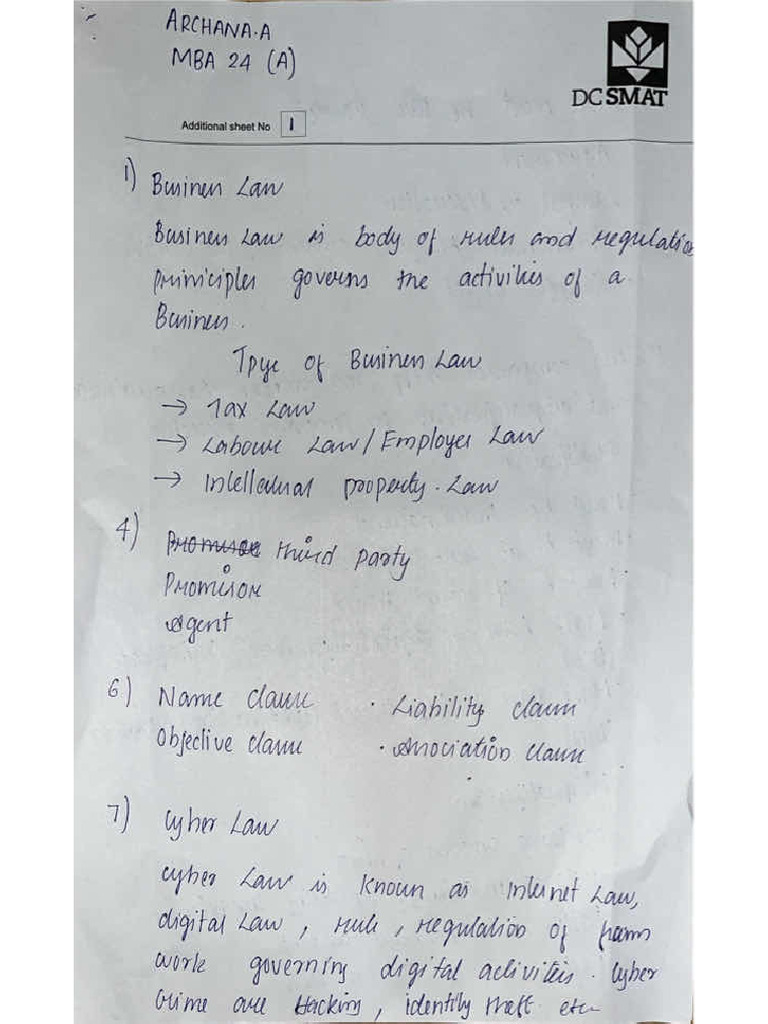 ARCHANA.A
MBA 24 (A)
DC SMAT
Additional sheet No 1
1) Business Law
Business Law is body of rules and regulation
priniciples governs the activities of a
Business.
Tpye of Business Law
→ Tax Law
→ Labour Law / Employer Law
→ Intellectual property. Law
4) Promisor third party
Promisor
Agent
6) Name clause · Liability clause
Objective clause · Association clause
7) Cyber Law
cyber Law is known as internet Law,
digital Law, rule, regulation of fram
work governing digital activities. Cyber
crime are Hacking, identity theft etc